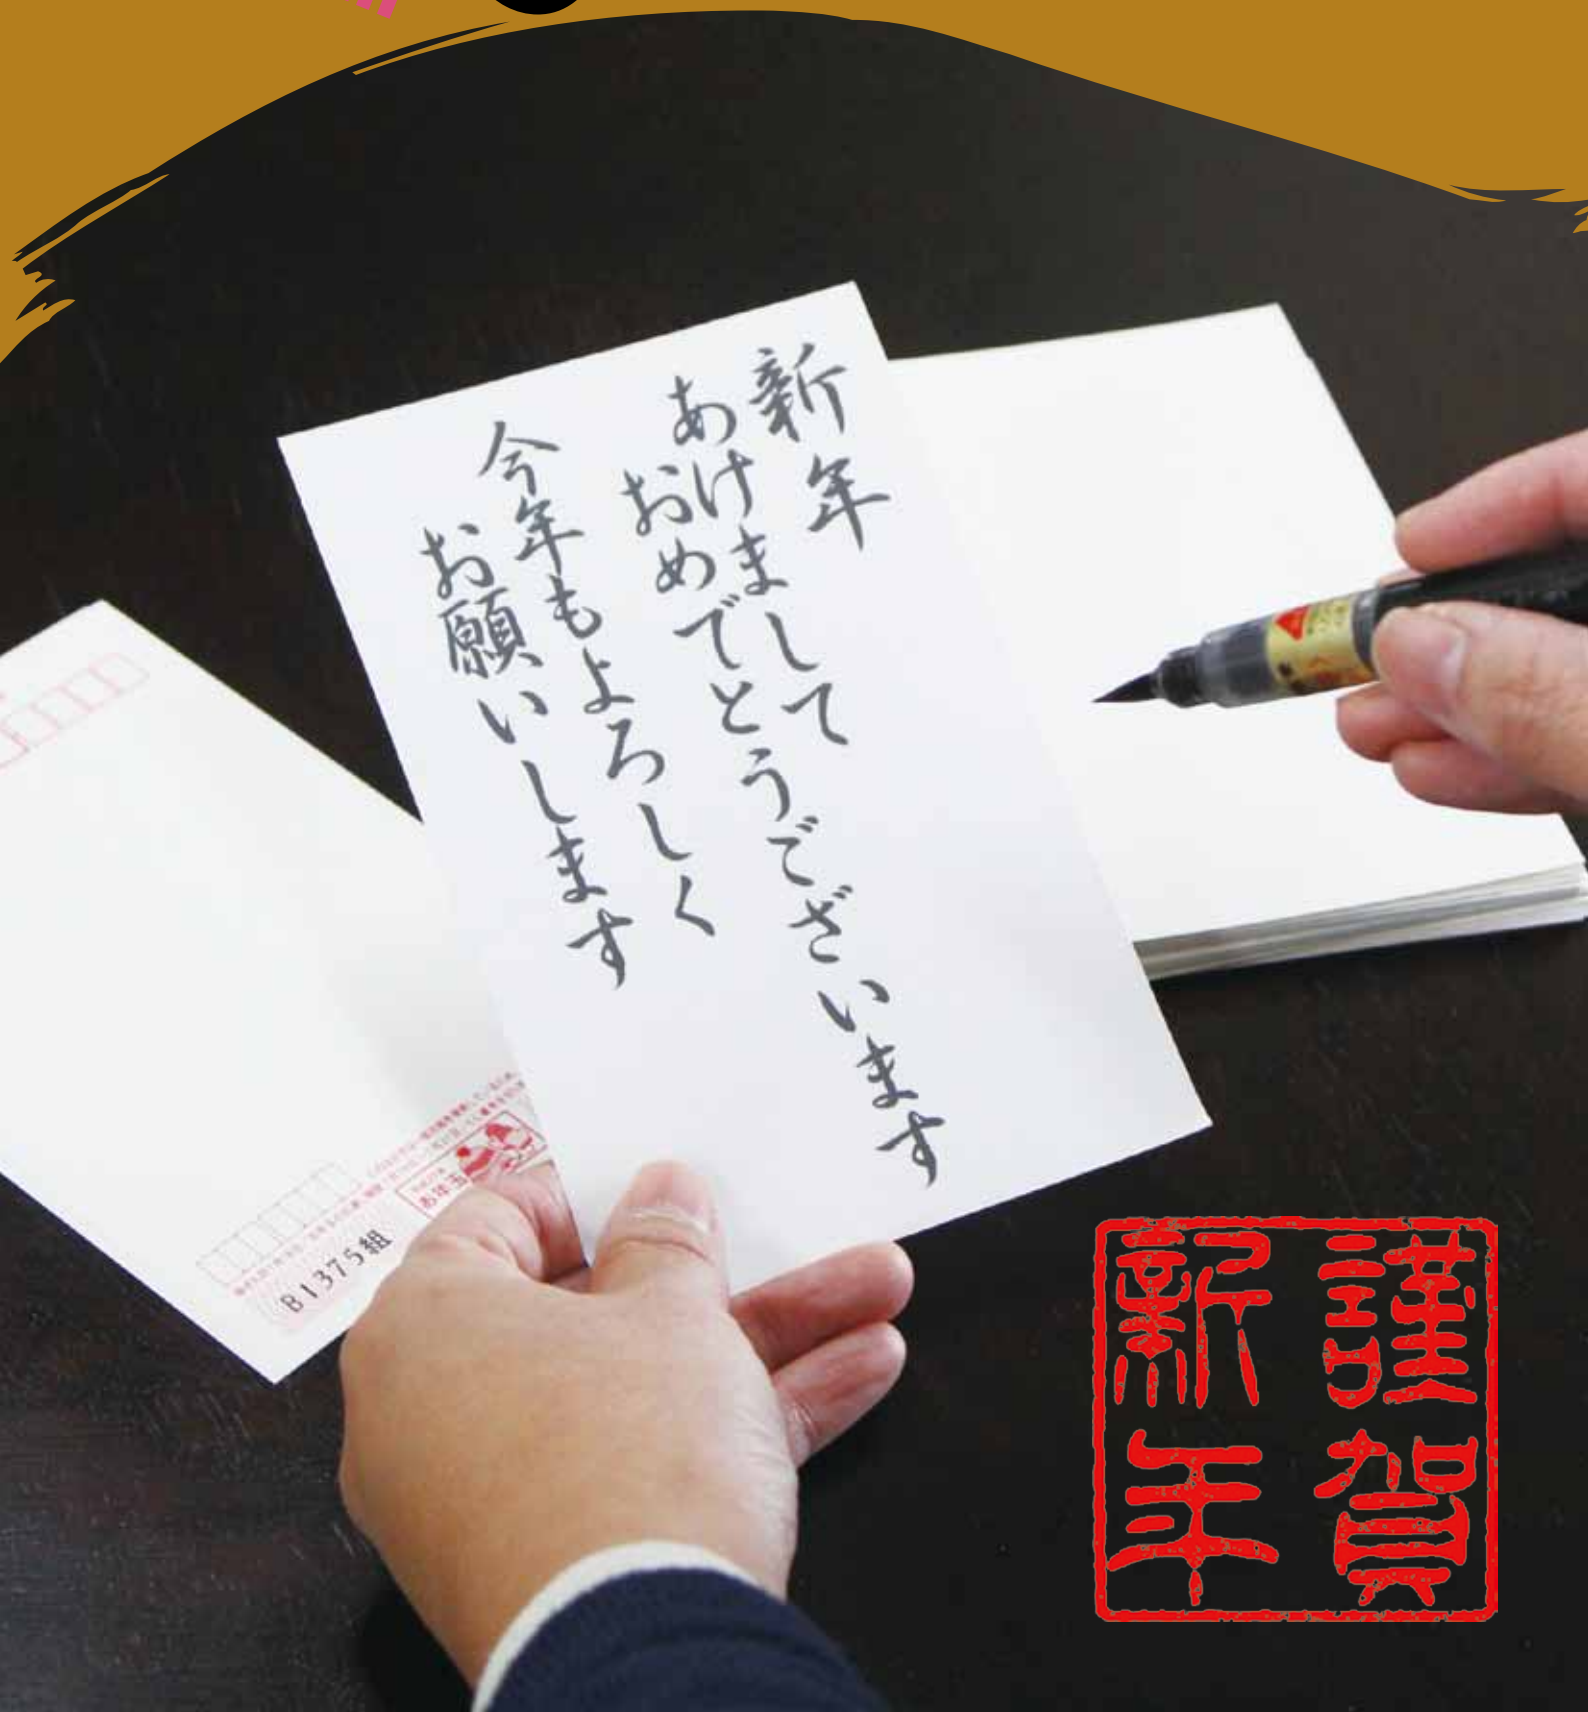 新年
あけまして
おめでとうございます
今年もよろしく
お願いします
お年玉
B1375組
謹賀
新年